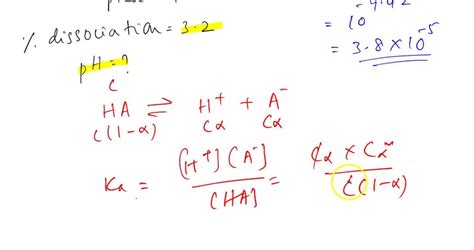 % dissociation = 3.2
pH = ?
= 10
= 3.8 × 10⁻⁵
C
HA ⇌ H⁺ + A⁻
C(1-α) Cα Cα
Ka = [H⁺][A⁻] / [HA] = Cα × Cα / C(1-α)